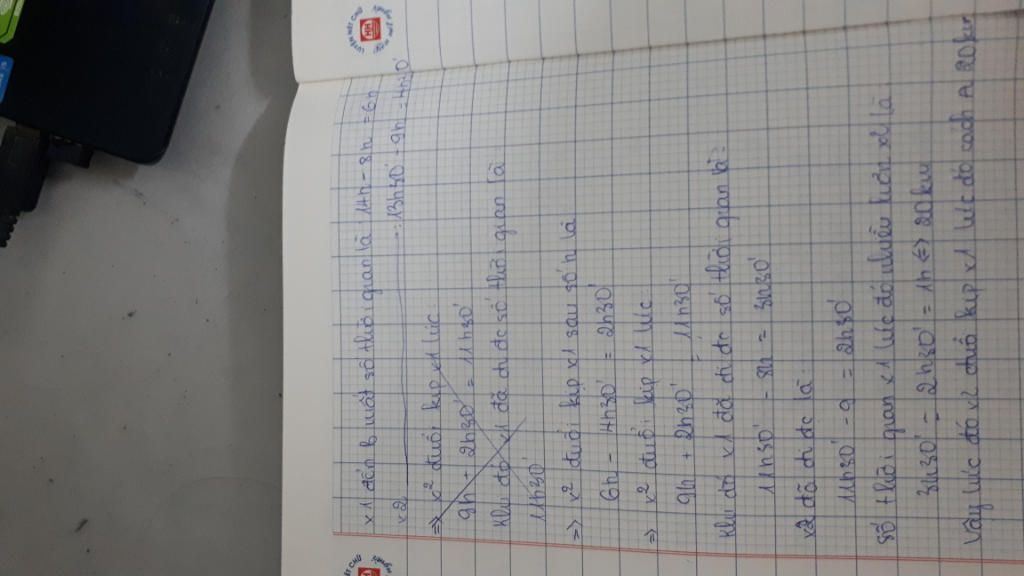 x1 đến B mất số thời gian là 14h - 8h = 6h
x2 : 13h30' - 9h = 4h30'
=> x2 đuổi kịp x1 lúc
9h + 2h30' = 11h30'
Khi đó x1 đã đi đc số thời gian là
11h30'
=> x2 đuổi kịp x1 sau số h là
6h - 4h30' = 2h30'
=> x2 đuổi kịp x1 lúc
9h + 2h30' = 11h30'
Khi đó x1 đã đi đc số thời gian là:
11h30' - 8h = 3h30'
x2 đã đi đc là:
11h30' - 9 = 2h30'
Số thời gian x1 lúc đó nhiều hơn x2 là
3h30' - 2h30' = 1h <=> 20km
Vậy lúc đó x2 đuổi kịp x1 lúc đó cách A 20km
LUYỆN NÉT CHỮ